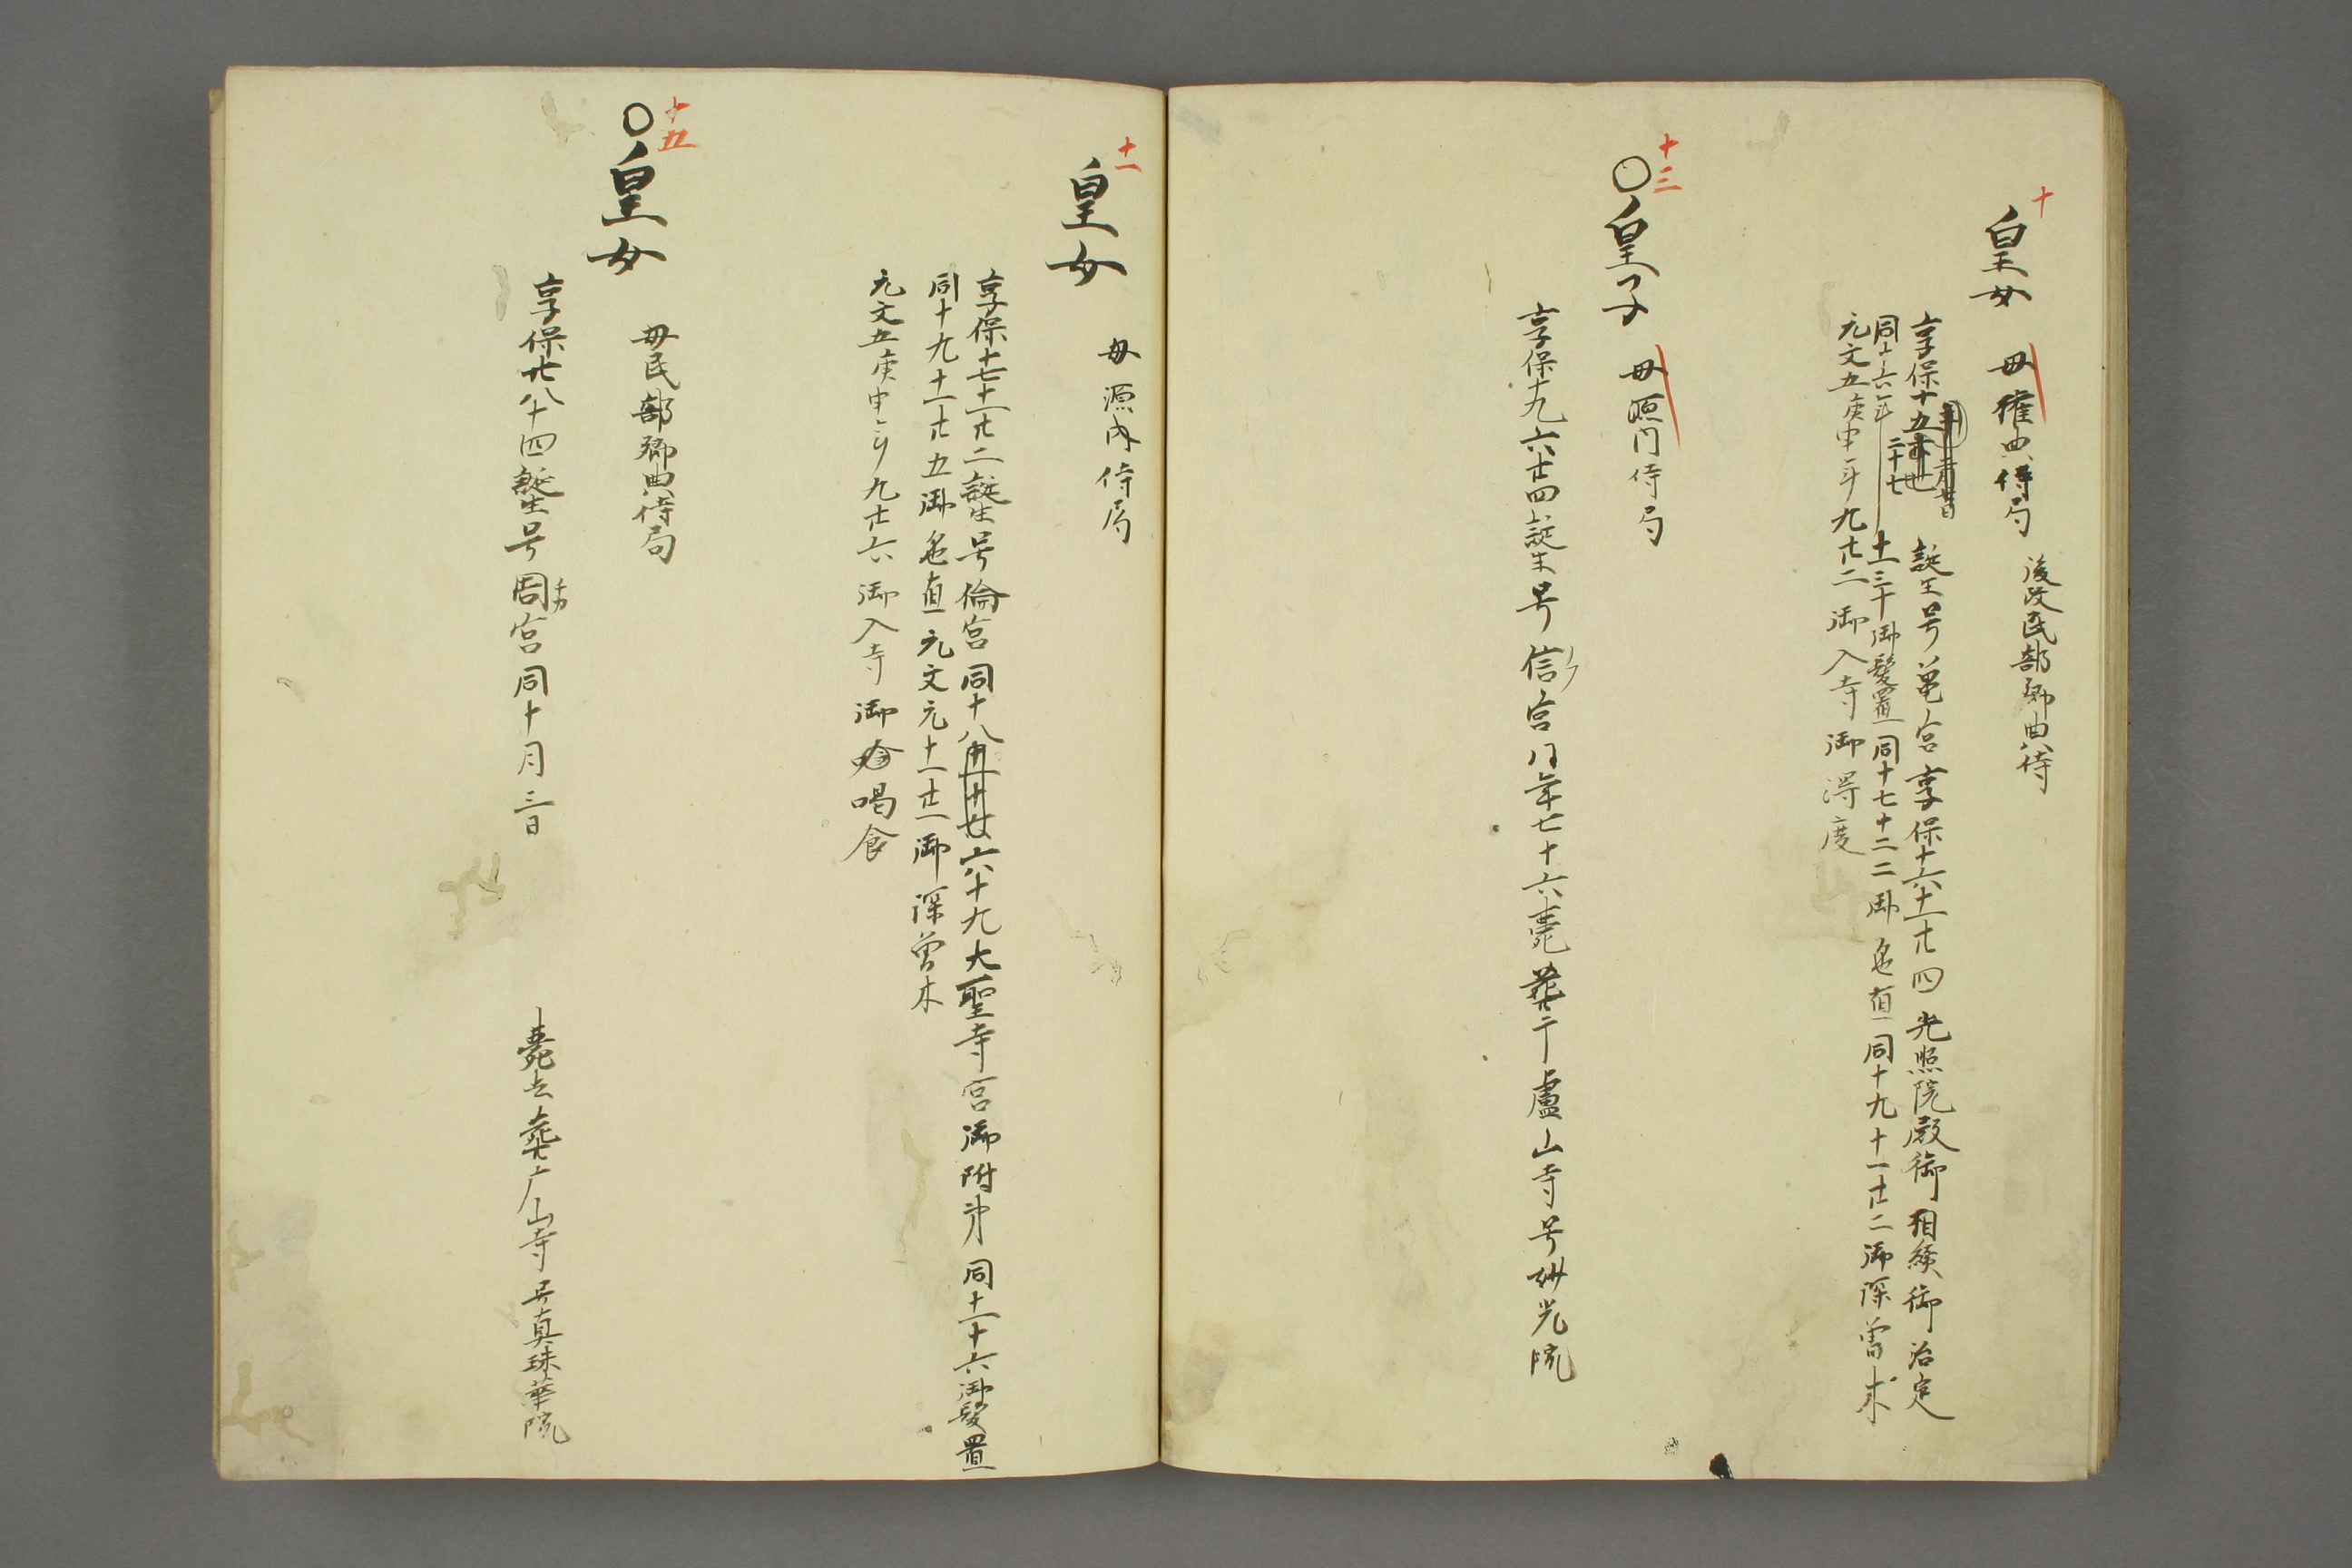 十
皇女
母権典侍局
後改民部卿典侍
享保十五
誕生号亀宮享保十六十一廿四光照院殿御相續御治定
同十六年
二十七
十一三十御髪置同十七十二二御色直同十九十一廿二御深曽木
元文五庚申年九廿二御入寺御得度
十三
〇皇子
母照門侍局
享保十九六廿四誕生号信宮同年七十六薨葬于盧山寺号妙光院
十一
皇女
母源内侍局
享保十七十一廿二誕生号倫宮同十八六十九大聖寺宮御附弟同十一十六御髪置
同十九十一廿五御色直元文元十一廿一御深曽木
元文五庚申年九廿六御入寺御喝食
十五
〇皇女
母民部卿典侍局
享保廿八十四誕生号周宮同十月三日
薨去葬广山寺号真珠華院